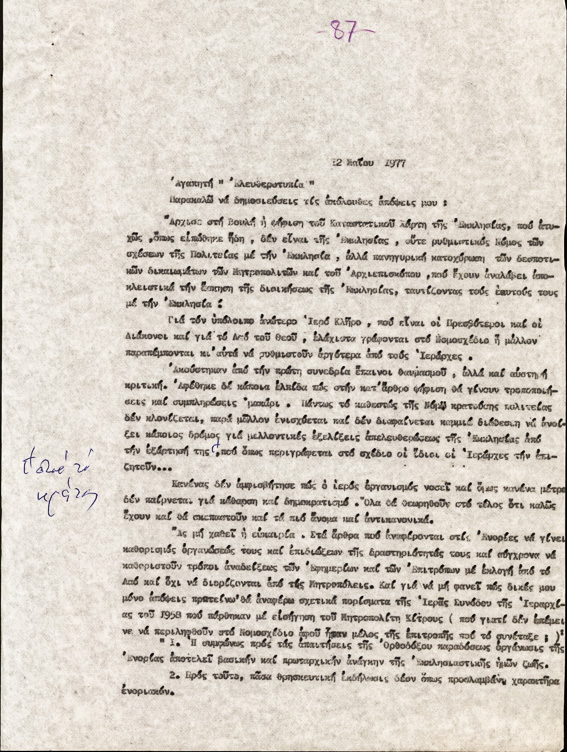 -87-
12 Μαΐου 1977
Ἀγαπητή " Ἐλευθεροτυπία "
Παρακαλῶ νά δημοσιεύσεις τίς ἀκόλουθες ἀπόψεις μου :
Ἄρχισε στή Βουλή ἡ ψήφιση τοῦ Καταστατικοῦ Χάρτη τῆς Ἐκκλησίας, πού ἀτυ-
χῶς ,ὅπως εἰπώθηκε ἤδη , δέν εἶναι τῆς Ἐκκλησίας , οὔτε ρυθμιστικός Νόμος τῶν
σχέσεων τῆς Πολιτείας μέ τήν Ἐκκλησία , ἀλλά πανηγυρική κατοχύρωση τῶν δεσποτι-
κῶν δικαιωμάτων τῶν Μητροπολιτῶν καί τοῦ Ἀρχιεπισκόπου ,πού ἔχουν ἀναλάβει ἀπο-
κλειστικά τήν ἄσκηση τῆς διοικήσεως τῆς Ἐκκλησίας, ταυτίζοντας τούς ἑαυτούς τους
μέ τήν Ἐκκλησία !
Γιά τόν ὑπόλοιπο ἀνώτερο Ἱερό Κλῆρο , πού εἶναι οἱ Πρεσβύτεροι καί οἱ
Διάκονοι καί γιά τό Λαό τοῦ Θεοῦ , ἐλάχιστα γράφονται στό Νομοσχέδιο ἤ μᾶλλον
παραπέμπονται κι'αὐτά νά ρυθμιστοῦν ἀργότερα ἀπό τούς Ἱεράρχες .
Ἀκούστηκαν ἀπό τήν πρώτη συνεδρία ἔπαινοι θαυμασμοῦ , ἀλλά καί αὐστηρή
κριτική. Ἀφέθηκε δέ κάποια ἐλπίδα πώς στήν κατ'ἄρθρο ψήφιση θά γίνουν τροποποιή-
σεις καί συμπληρώσεις μακάρι . Πάντως τό καθεστώς τῆς Νόμῳ κρατούσης πολιτείας
δέν κλονίζεται, παρά μᾶλλον ἐνισχύεται καί δέν διαφαίνεται καμμιά διάθεση νά ἀνοί-
ξει κάποιος δρόμος γιά μελλοντικές ἐξελίξεις ἀπελευθερώσεως τῆς Ἐκκλησίας ἀπό
τήν ἐξάρτησή της ,πού ὅπως περιγράφεται στό σχέδιο οἱ ἴδιοι οἱ Ἱεράρχες τήν ἐπι-
ζητοῦν...
ἀπό τό
κράτος
Κανένας δέν ἀμφισβήτησε πώς ὁ ἱερός ὀργανισμός νοσεῖ καί ὅμως κανένα μέτρο
δέν παίρνεται γιά κάθαρση καί δημοκρατισμό . Ὅλα θά θεωρηθοῦν στό τέλος ὅτι καλῶς
ἔχουν καί θά σκεπαστοῦν καί τά πιό ἄνομα καί ἀντικανονικά.
Ἄς μή χαθεῖ ἡ εὐκαιρία . Στά ἄρθρα πού ἀναφέρονται στίς Ἐνορίες νά γίνει
καθορισμός ὀργανώσεώς τους καί ἐπιδιώξεων τῆς δραστηριότητάς τους καί σύγχρονα νά
καθεριστοῦν τρόποι ἀναδείξεως τῶν Ἐφημερίων καί τῶν Ἐπιτρόπων μέ ἐκλογή ἀπό τό
Λαό καί ὄχι νά διορίζονται ἀπό τίς Μητροπόλεις. Καί γιά νά μή φανεῖ πώς δικές μου
μόνο ἀπόψεις προτείνω'θά ἀναφέρω σχετικά πορίσματα τῆς Ἱερᾶς Συνόδου τῆς Ἱεραρχί-
ας τοῦ 1958 πού πάρθηκαν μέ εἰσήγηση τοῦ Μητροπολίτη Κίτρους ( πού γιατί δέν ἐπέμει
νε νά περιληφθοῦν στό Νομοσχέδιο ἀφοῦ ἦταν μέλος τῆς ἐπιτροπῆς πού τό συνέταξε ; )
" 1. Ἡ συμφώνως πρός τάς ἀπαιτήσεις τῆς Ὀρθοδόξου παραδόσεως ὀργάνωσις τῆς
Ἐνορίας ἀποτελεῖ βασικήν καί πρωταρχικήν ἀνάγκην τῆς Ἐκκλησιαστικῆς ἡμῶν ζωῆς.
2. Πρός τοῦτο, πᾶσα θρησκευτική ἐκδήλωσις δέον ὅπως προσλαμβάνῃ χαρακτῆρα
ἐνοριακόν.